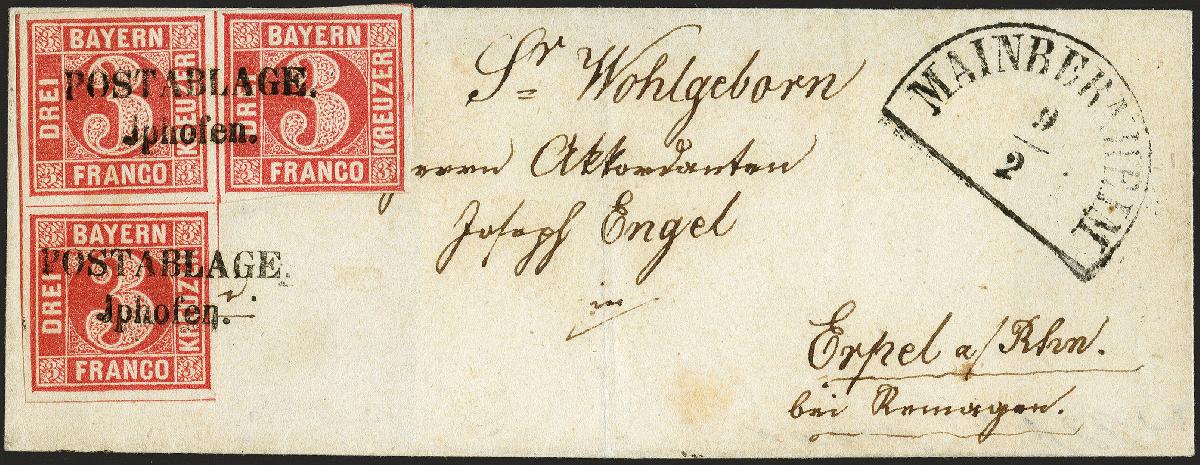 BAYERN
DREI 3 KREUZER
FRANCO
BAYERN
3 KREUZER
FRANCO
POSTABLAGE.
Jphofen.
BAYERN
DREI 3 KREUZER
FRANCO
POSTABLAGE.
Jphofen.
Sr Wohlgeborn
Herrn Akkordanten
Joseph Engel
in
Erpel a/Rhn.
bei Remagen.
MAINBERNHEIM
9/2